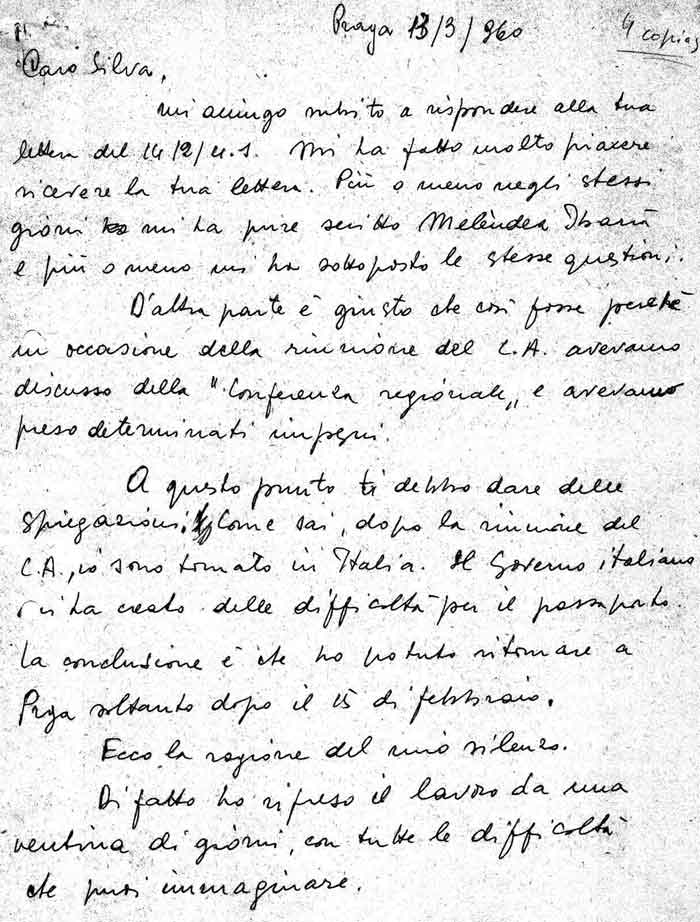 Praga 13/3/960
4 copias
Caro Silva,
mi accingo subito a rispondere alla tua
lettera del 14/2/u.s. Mi ha fatto molto piacere
ricevere la tua lettera. Più o meno negli stessi
giorni mi ha pure scritto Melèndez Ibarra
e più o meno mi ha sottoposto le stesse questioni.
D'altra parte è giusto che così fosse perché
in occasione della riunione del C.A. avevamo
discusso della "Conferenza regionale" e avevamo
preso determinati impegni.
A questo punto ti debbo dare delle
spiegazioni. Come sai, dopo la riunione del
C.A., io sono tornato in Italia. Il Governo italiano
mi ha creato delle difficoltà per il passaporto.
La conclusione è che ho potuto ritornare a
Praga soltanto dopo il 15 di febbraio.
Ecco la ragione del mio silenzo.
Di fatto ho ripreso il lavoro da una
ventina di giorni, con tutte le difficoltà
che puoi immaginare.